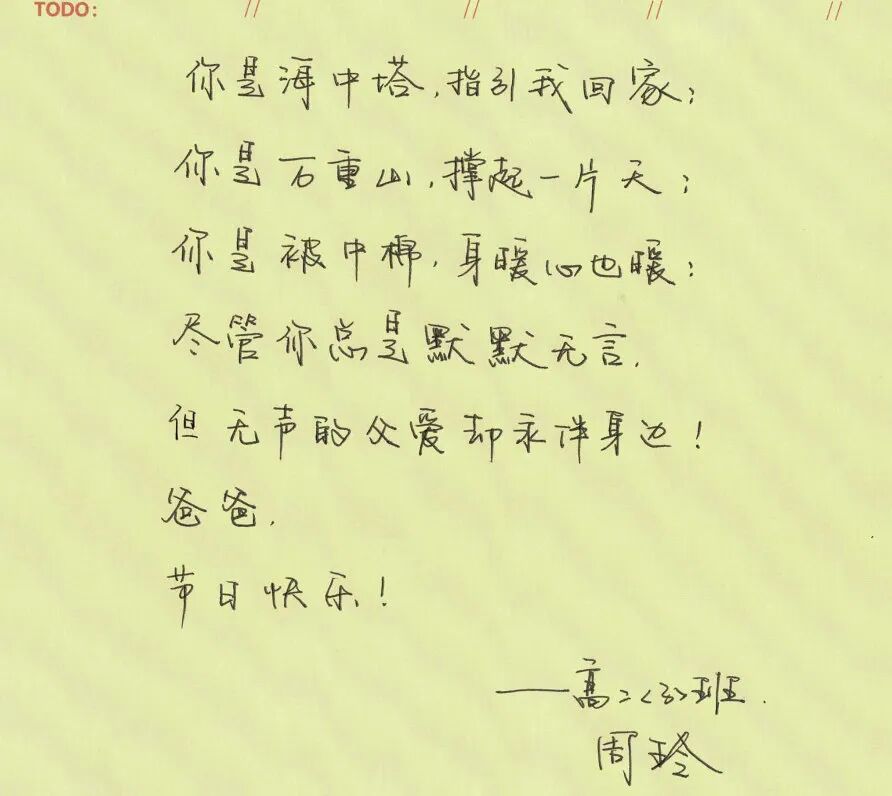 TODO: // // // //
你是海中塔,指引我回家;
你是万重山,撑起一片天;
你是被中棉,身暖心也暖;
尽管你总是默默无言,
但无声的父爱却永伴身边!
爸爸,
节日快乐!
——高二<3>班.
周玲